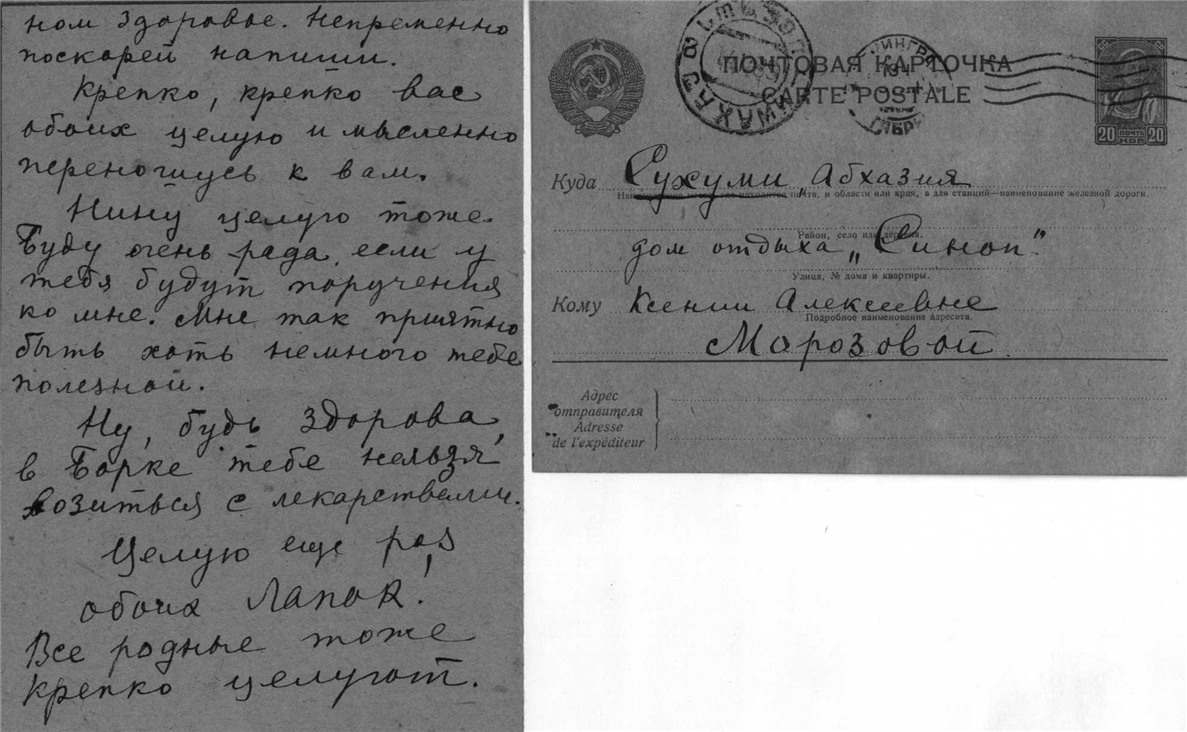 ном здоровье. Непременно
поскорей напиши.
Крепко, крепко вас
обоих целую и мысленно
переношусь к вам.
Нину целую тоже.
Буду очень рада, если у
тебя будут поручения
ко мне. Мне так приятно
быть хоть немного тебе
полезной.
Ну, будь здорова,
в Борке тебе нельзя
возиться с лекарствами.
Целую еще раз
обоих Лапок!
Все родные тоже
крепко целуют.
ПОЧТОВАЯ КАРТОЧКА
CARTE POSTALE
20 ПОЧТА 20
Куда Сухуми, Абхазия
почта, и области или края, а для станций—наименование железной дороги.
Район, село или деревня.
дом отдыха „Синоп“
Улица, № дома и квартиры.
Кому Ксении Алексеевне
Подробное наименование адресата.
Морозовой
Адрес
отправителя
Adresse
de l'expéditeur